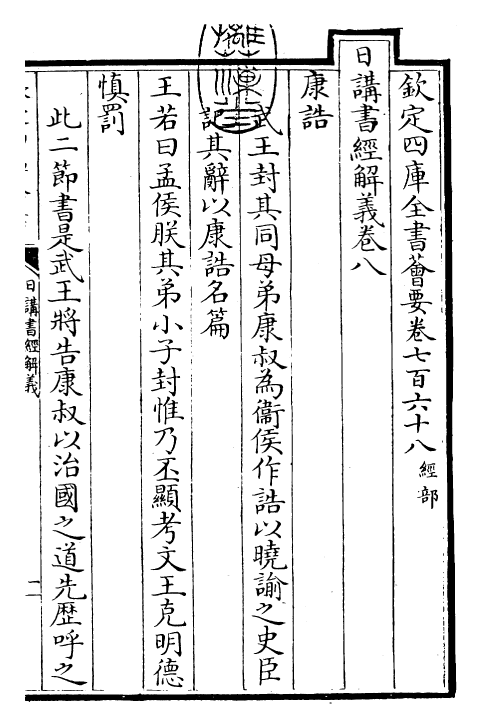 欽定四庫全書薈要卷七百六十八 經部
日講書經解義卷八
康誥
武王封其同母弟康叔為衞侯作誥以曉諭之史臣
記其辭以康誥名篇
王若曰孟侯朕其弟小子封惟乃丕顯考文王克明德
慎罰
此二節書是武王將告康叔以治國之道先歴呼之
日講書經解義
一